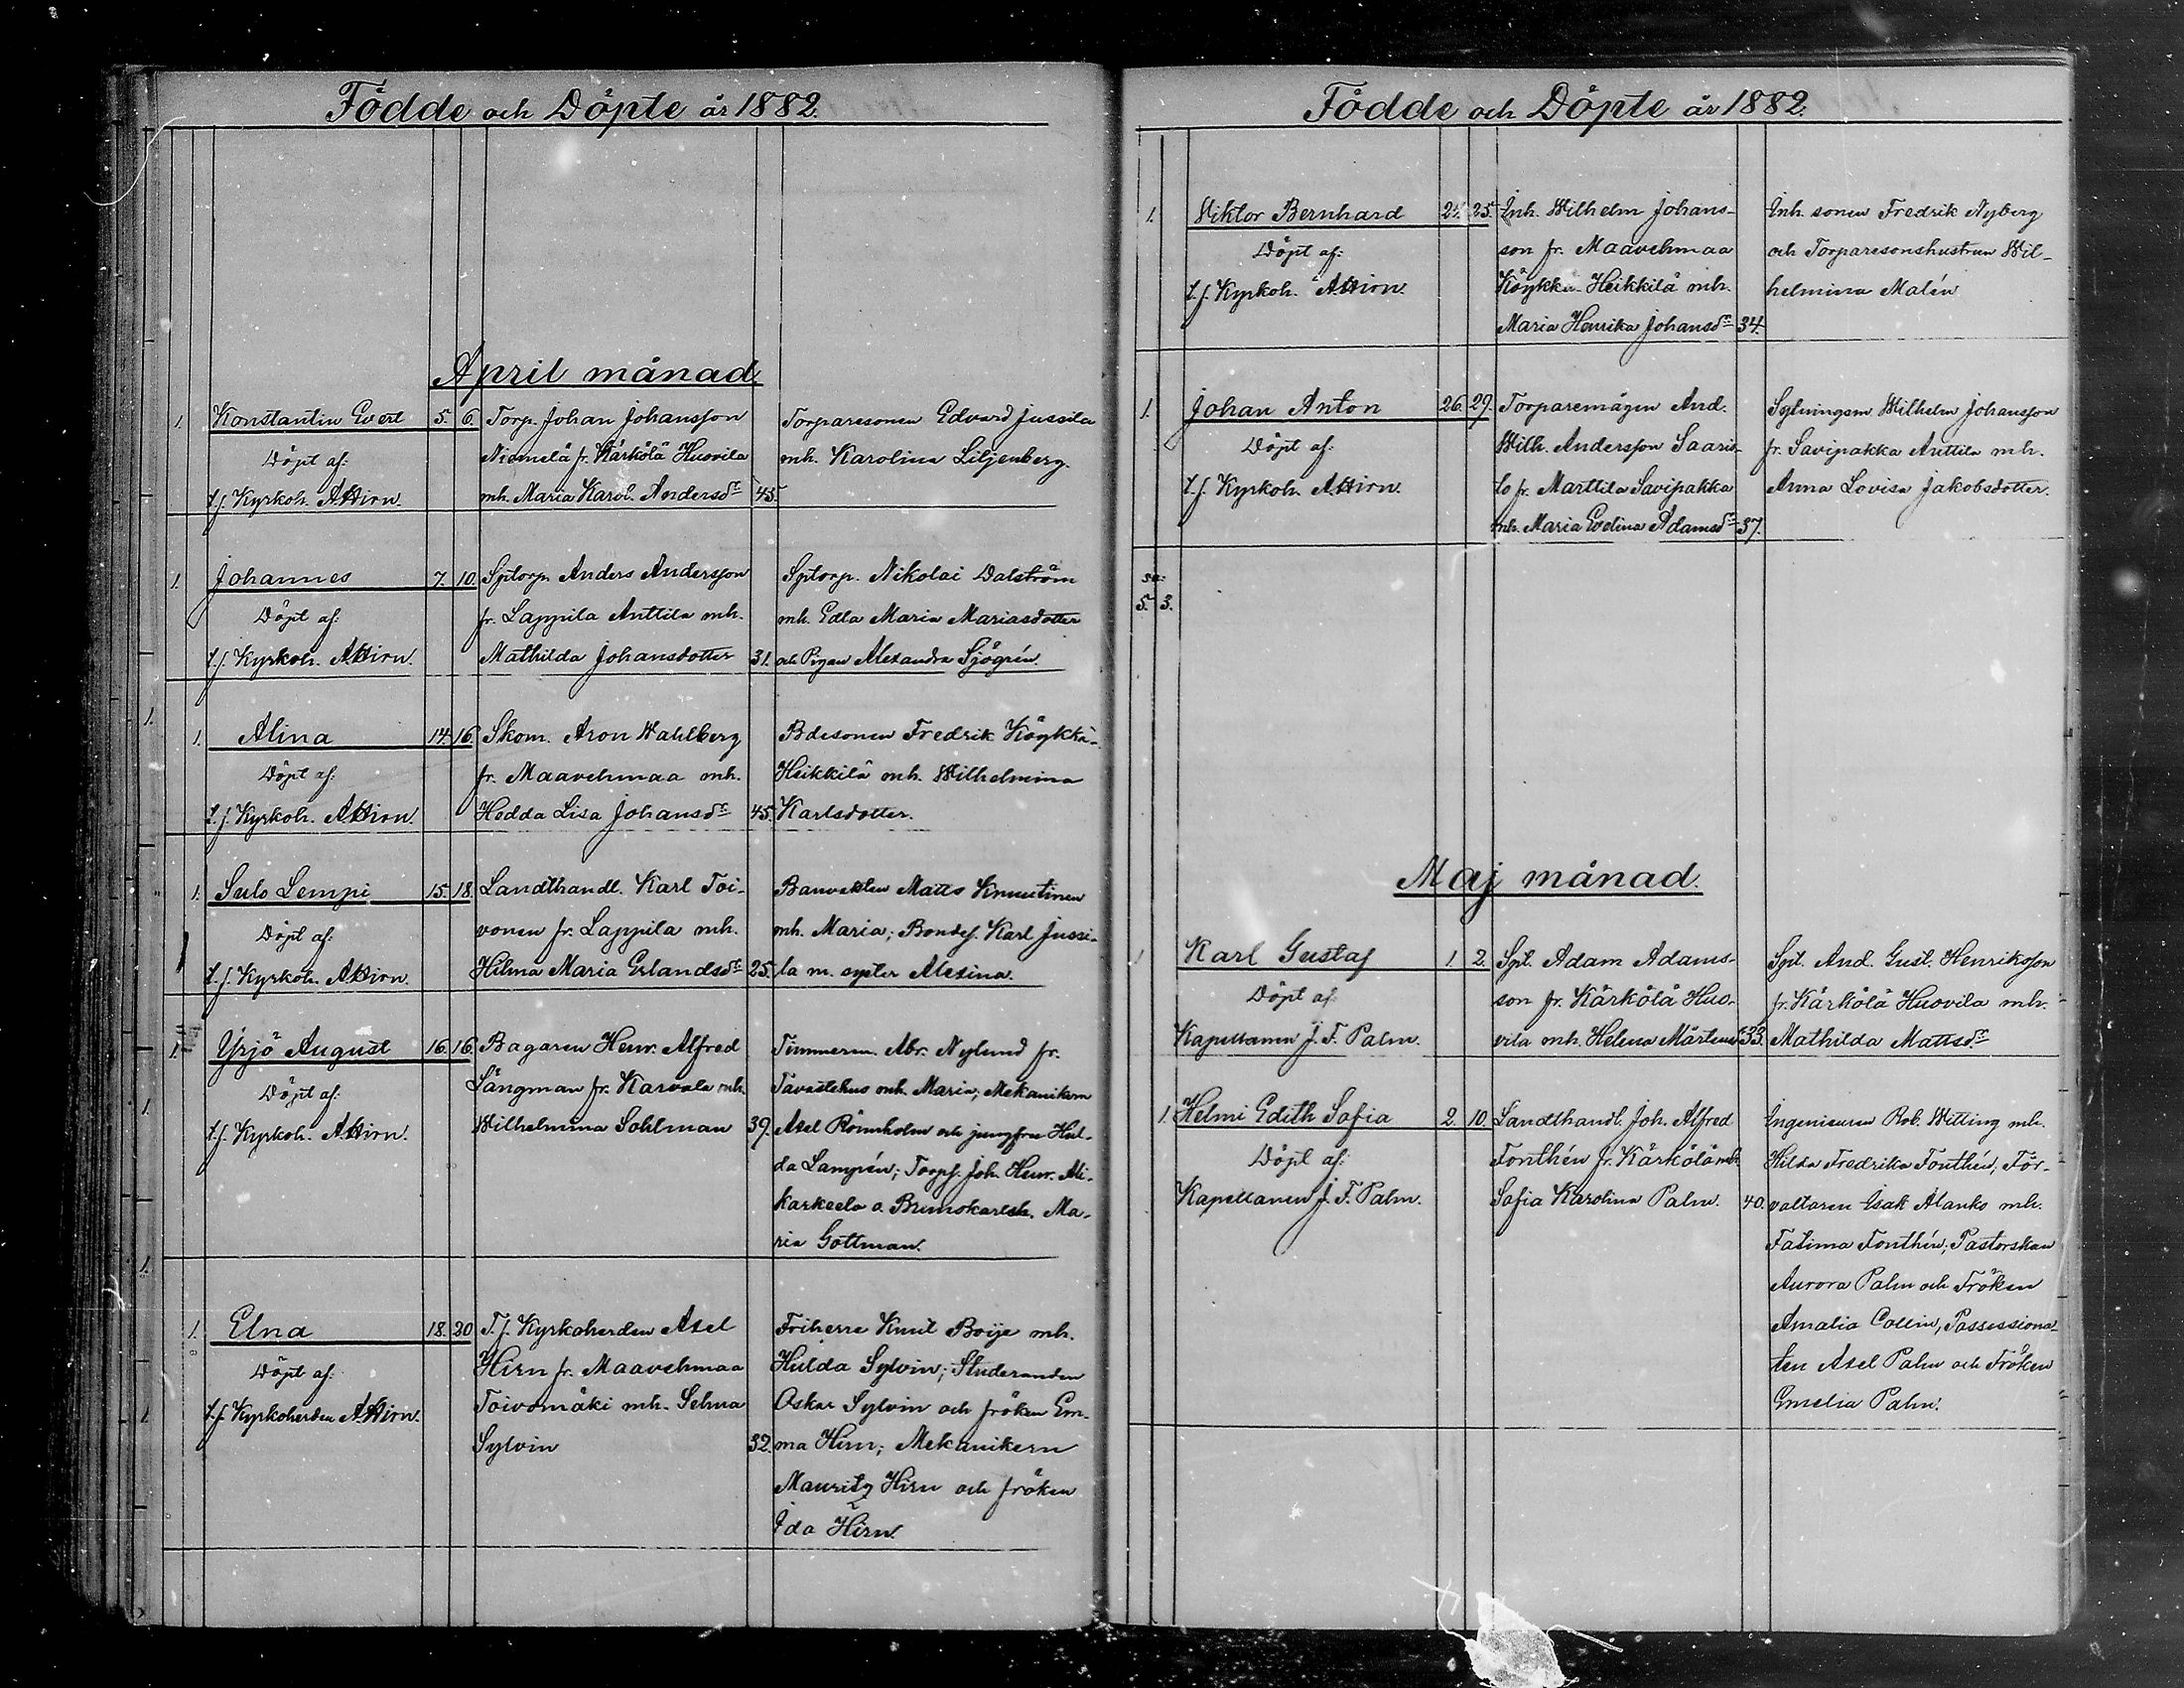 Födde och Döpte år 1882.
April månad.
1. Konstantin Evert 5. 6. Torp. Johan Johansson Torparesonen Edvard Jussila
Döpt af: Niemelä fr. Kärkölä Huovila mh. Karolina Liljenberg.
t.f. Kyrkoh. AHirn. mh. Maria Karol. Andersdr 43.
1. Johannes 7. 10. Sptorp. Anders Andersson Sptorp. Nikolai Dalström
Döpt af: fr. Lappila Anttila mh. mh. Edla Maria Mariasdotter
t.f. Kyrkoh. AHirn. Mathilda Johansdotter 31. och Pigan Alexandra Sjögrén.
1. Alina 14. 16. Skom. Aron Wahlberg Bdesonen Fredrik Köykkä-
Döpt af: fr. Maavehmaa mh. Heikkilä mh. Wilhelmina
t.f. Kyrkoh. AHirn. Hedda Lisa Johansdr 45. Karlsdotter.
1. Sulo Lempi 15. 18. Landthandl. Karl Toi- Banvakten Matts Knuutinen
Döpt af: vonen fr. Lappila mh. mh. Maria; Bondes. Karl Jussi-
t.f. Kyrkoh. AHirn. Hilma Maria Erlandsdr 25. la m. syster Alexina.
1. Yrjö August 16. 16. Bagaren Henr. Alfred Timmerm. Abr. Nylund fr.
Döpt af: Långman fr. Karvala mh. Tavastehus mh. Maria; Mekanikern
t.f. Kyrkoh. AHirn. Wilhelmina Sohlman 39. Axel Rönnholm och jungfru Hul-
da Lampén; Torps. Joh. Henr. Ali-
karkeela o. Brunskarlsh. Ma-
ria Gottman.
1. Elna 18. 20 T.f. Kyrkoherden Axel Friherre Emil Boije mh.
Döpt af: Hirn fr. Maavehmaa Hulda Sylvin; Studeranden
t.f. Kyrkoherden AHirn. Toivomäki mh. Selma Oskar Sylvin och fröken Em-
Sylvin 32. ma Hirn; Mekanikern
Mauritz Hirn och fröken
Ida Hirn.
Födde och Döpte år 1882.
1. Wiktor Bernhard 24. 25. Inh. Wilhelm Johans- Inh. sonen Fredrik Nyberg
Döpt af: son fr. Maavehmaa och Torparesonshustrun Wil-
t.f. Kyrkoh. AHirn. Köykkä Heikkilä mh. helmina Malén
Maria Henrika Johansdr 34.
1. Johan Anton 26. 29. Torparemågen And. Sytningsm. Wilhelm Johansson
Döpt af: Wilh. Andersson Saaris- fr. Savipakka Anttila mh.
t.f. Kyrkoh. AHirn. to fr. Marttila Savipakka Anna Lovisa Jakobsdotter.
mh. Maria Evelina Adamsdr 37.
sa:
5. 3.
Maj månad.
1 Karl Gustaf 1. 2. Spt. Adam Adams- Spt. And. Gust. Henriksson
Döpt af: son fr. Kärkölä Huo- fr. Kärkölä Huovila mh.
Kapellanen J. F. Palm. vila mh. Helena Mårtens 33. Mathilda Mattsdr
1. Helmi Edith Sofia 2. 10. Landthandl. Joh. Alfred Ingeniuren Rob. Witting mh.
Döpt af: Fonthén fr. Kärkölä mh Hilda Fredrika Fonthén; För-
Kapellanen J. F. Palm. Sofia Karolina Palm. 40. valtaren Isak Alanko mh.
Fatima Fonthén; Pastorskan
Aurora Palm och Fröken
Amalia Collin, Possessiona-
ten Axel Palm och Fröken
Emelia Palm.